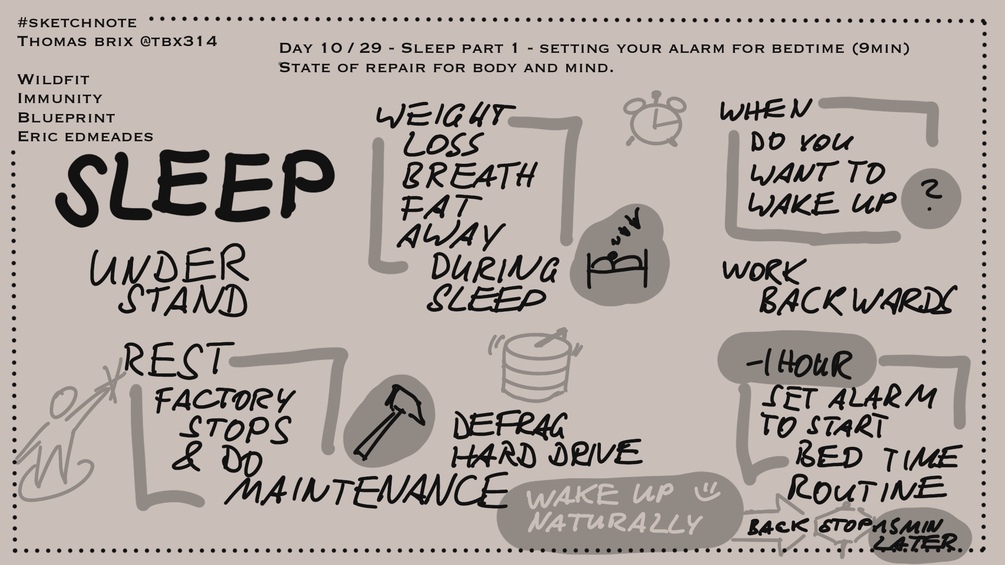 #SKETCHNOTE
THOMAS BRIX @TBX314
WILDFIT
IMMUNITY
BLUEPRINT
ERIC EDMEADES
DAY 10 / 29 - SLEEP PART 1 - SETTING YOUR ALARM FOR BEDTIME (9MIN)
STATE OF REPAIR FOR BODY AND MIND.
SLEEP
UNDER
STAND
REST
FACTORY
STOPS
& DO
MAINTENANCE
WEIGHT
LOSS
BREATH
FAT
AWAY
DURING
SLEEP
DEFRAG
HARD DRIVE
WAKE UP
NATURALLY
WHEN
DO YOU
WANT TO
WAKE UP ?
WORK
BACKWARDS
-1 HOUR
SET ALARM
TO START
BED TIME
ROUTINE
BACK STOP
15MIN
LATER